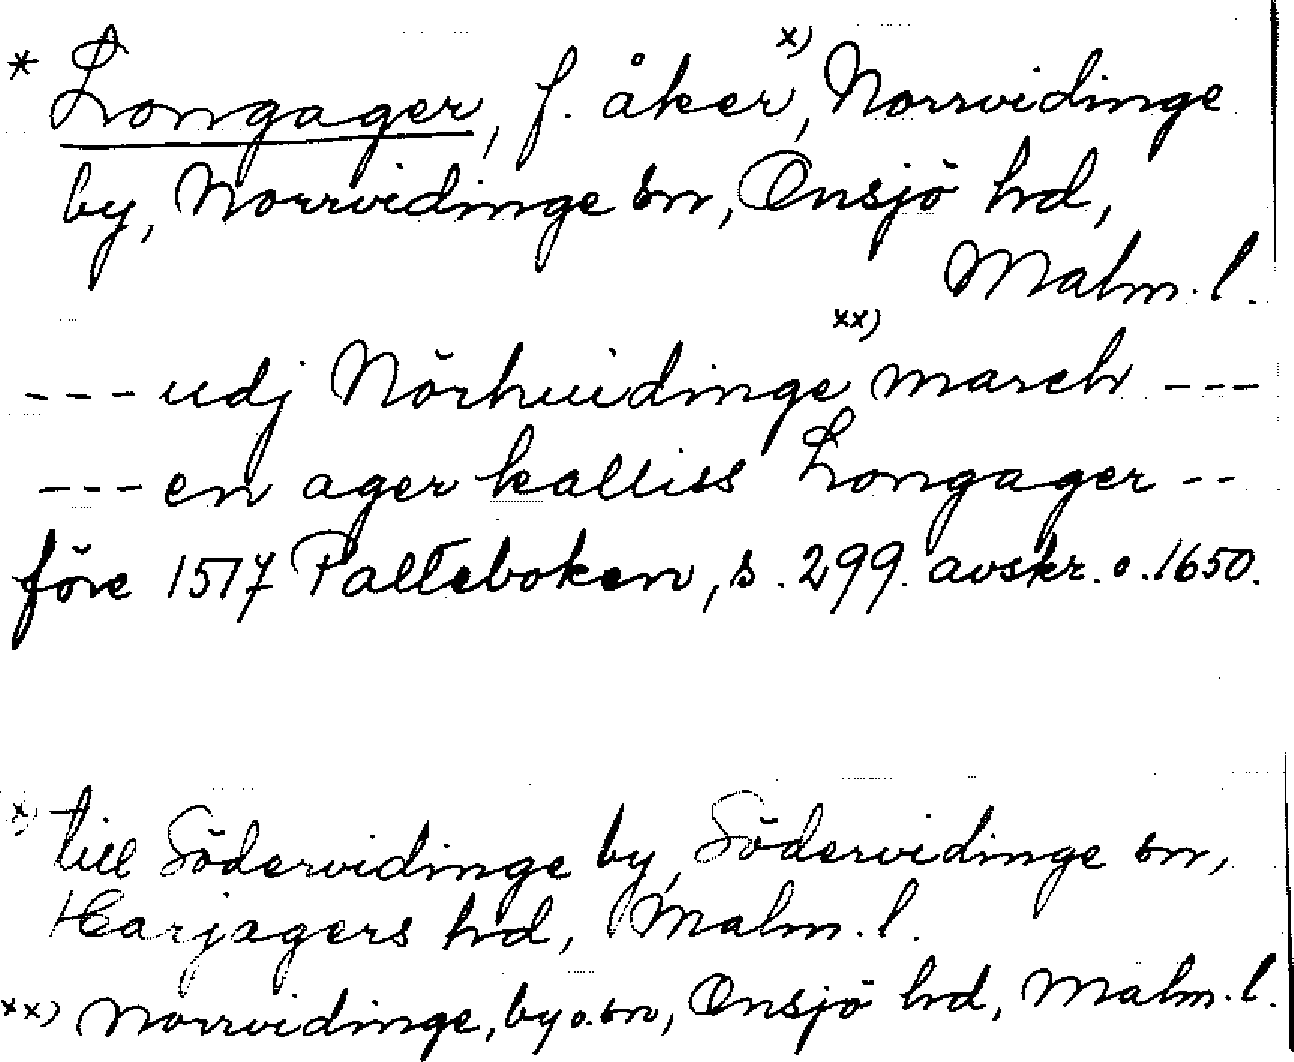 * Longager, f. åker,x) Norrvidinge
by, Norrvidinge sn, Onsjö hrd,
Malm. l.
--- udj Nörhuidinge xx) march ---
--- en ager kalliss Longager --
före 1517 Palteboken, s. 299. avskr. o. 1650.
x) till Södervidinge by, Södervidinge sn,
Harjagers hrd, Malm. l.
xx) Norrvidinge, by o. sn, Onsjö hrd, Malm. l.